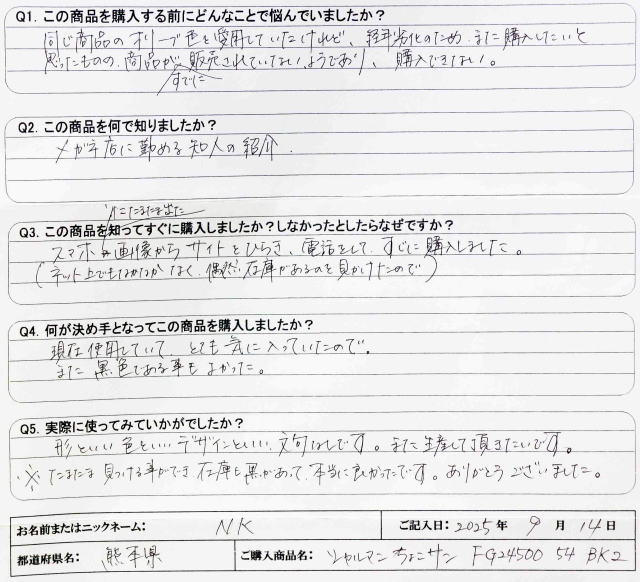 Q1. この商品を購入する前にどんなことで悩んでいましたか？
同じ商品のオリーブ色を愛用していたけれど、経年劣化のため、また購入したいと
思ったものの、商品がすでに販売されていないようであり、購入できない。
Q2. この商品を何で知りましたか？
メガネ店に勤める知人の紹介.
Q3. この商品を知ってすぐに購入しましたか？しなかったとしたらなぜですか？
スマホにたまたま出た画像からサイトをひらき、電話をして、すぐに購入しました。
(ネット上でもなかなかなく、偶然、在庫があるのを見かけたので)
Q4. 何が決め手となってこの商品を購入しましたか？
現在使用していて、とても気に入っていたので。
また黒色である事もよかった。
Q5. 実際に使ってみていかがでしたか？
形といい色といい、デザインといい、文句なしです。また生産して頂きたいです。
※たまたま見つける事ができ、在庫も黒があって、本当に良かったです。ありがとうございました。
お名前またはニックネーム: NK ご記入日: 2025年 9月 14日
都道府県名: 熊本県 ご購入商品名: シャルマン ちょこサン FG24500 54 BK2